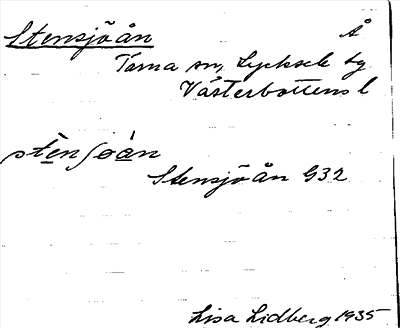 Stensjöån Å
Tärna sn, Lycksele tg
Västerbottens l
stènʃoàn
Stensjöån G32
Lisa Lidberg 1935